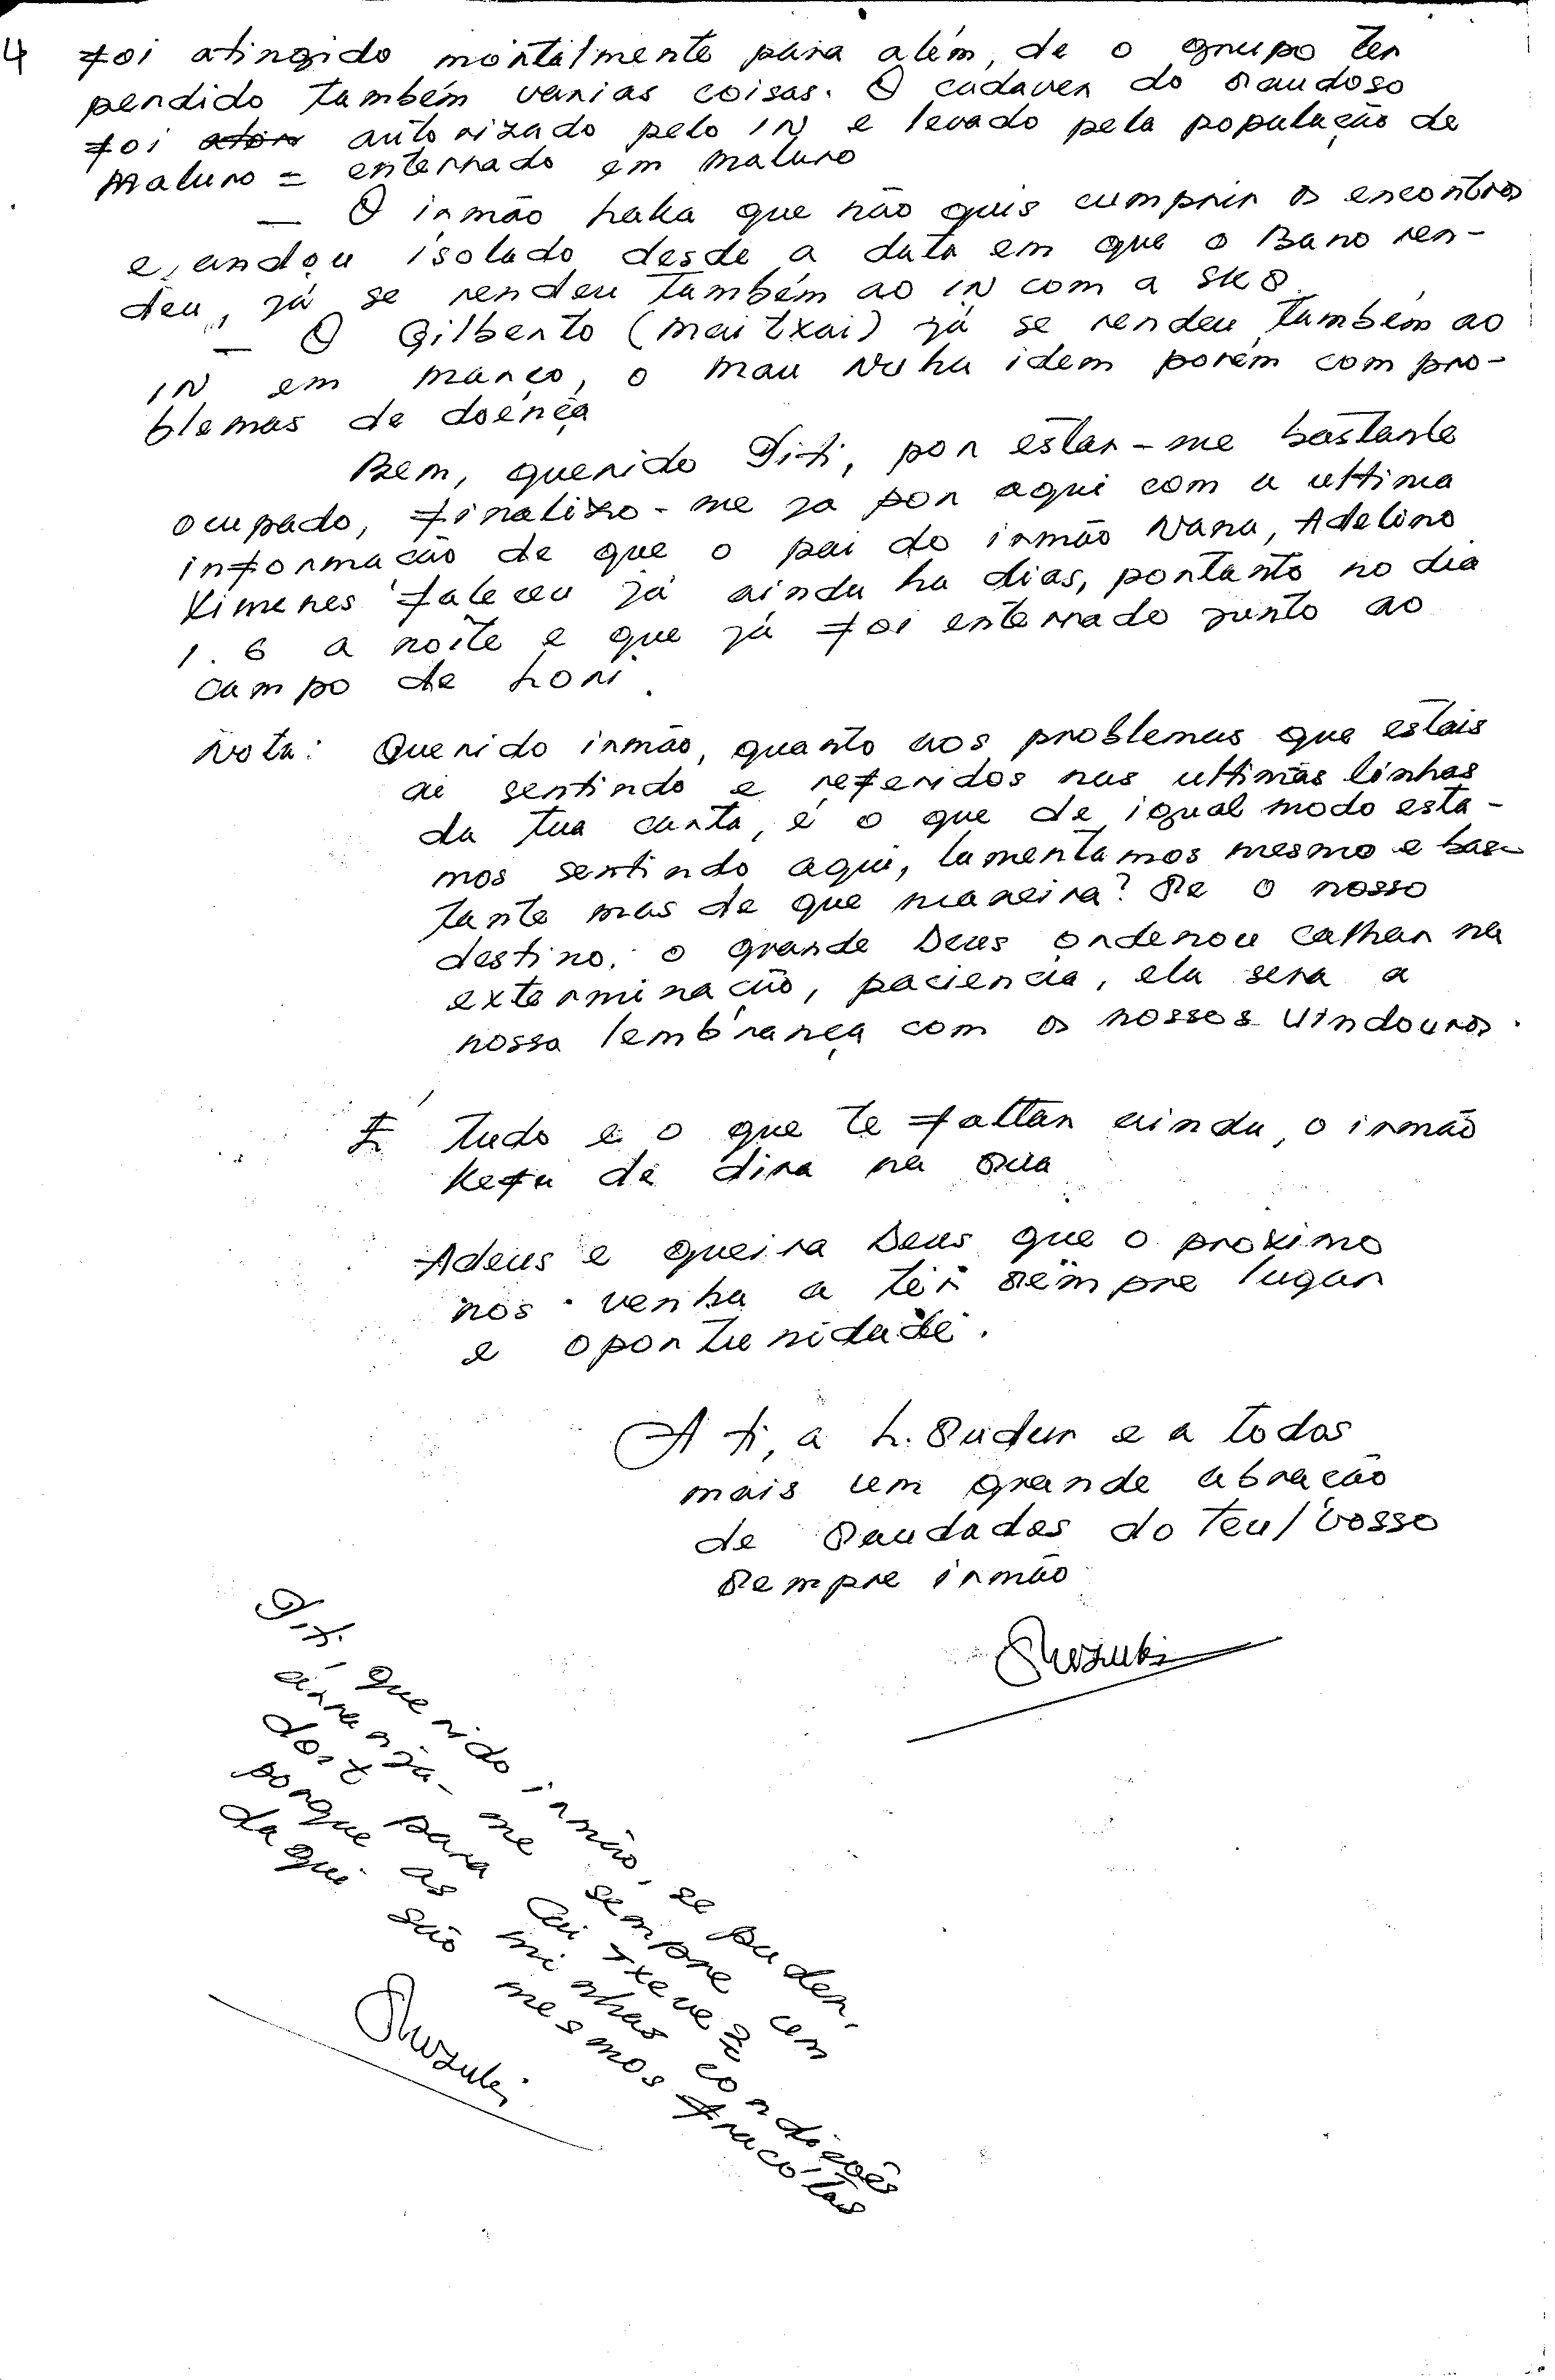 4 foi atingido mortalmente para além, de o grupo ter
perdido também varias coisas. O cadaver do saudoso
foi autorizado pelo IN e levado pela população de
Maluro = enterrado em Maluro
— O irmão haka que não quis cumprir os encontros
e, andou isolado desde a data em que o Bano ren-
deu, já se rendeu também ao IN com a SKO.
— O Gilberto (Mei txai) já se rendeu também ao
IN em março, o mau Nuha idem porém com pro-
blemas de doença
Bem, querido Titi, por estar-me bastante
ocupado, finalizo-me ja por aqui com a ultima
informação de que o pai do irmão Nana, Adelino
Ximenes faleceu já ainda ha dias, portanto no dia
1.6 a noite e que já foi enterrado junto ao
campo de Lori.
Nota: Querido irmão, quanto aos problemas que estais
ai sentindo e referidos nas ultimas linhas
da tua carta, é o que de igual modo esta-
mos sentindo aqui, lamentamos mesmo e bas-
tante mas de que maneira? Se o nosso
destino, o grande Deus ordenou calhar na
exterminação, paciencia, ela sera a
nossa lembrança com os nossos vindouros.
É tudo e o que te faltar ainda, o irmão
Kefu de dira na sua
Adeus e queira Deus que o proximo
nos venha a ter sempre lugar
e oportunidade.
A ti, a L. Sudur e a todos
mais um grande abração
de saudades do teu/vosso
sempre irmão
Shozuki
Titi, querido irmão, se puder,
arranja-me sempre um
dos para Cai
porque as minhas condições
daqui são mesmos fracótas
Shozuki